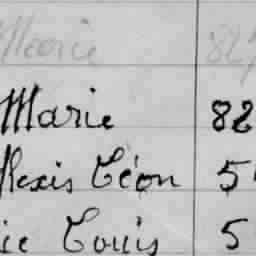 Marie 82
Marie 82
lexis Léon 5
ie Louis 5